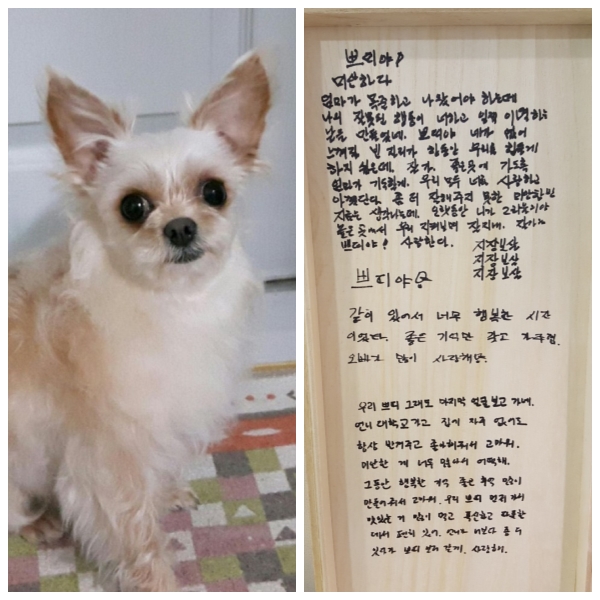 쁘띠야♡
미안하다
엄마가 목줄하고 나왔어야 하는데
나의 잘못된 행동이 너하고 일찍 이별하는
날을 만들었네. 쁘띠야 네가 없어
느껴질 빈 자리가 한동안 우리를 힘들게
하지 싶은데. 잘가. 좋은곳에 가도록
엄마가 기도할게. 우리 모두 너를 사랑하고
아꼈단다. 좀 더 잘해주지 못한 미안함만
지금은 생각나는데. 오랫동안 니가 그리울이야
좋은 곳에서 우리 지켜보며 잘지내. 잘가
쁘띠야! 사랑한다.
지장보살
지장보살
지장보살
쁘띠야
같이 있어서 너무 행복한 시간
이었다. 좋은 기억만 갖고
오빠가 많이 사랑해
우리 쁘띠 그래도 마지막 얼굴보고 가네.
언니 대학교가고 집에 자주 없어도
항상 반겨주고 좋아해줘서 고마워.
미안한 게 너무 많아서 어떡해.
그동안 행복한 기억 좋은 추억 많이
만들어줘서 고마워. 우리 쁘띠 먼저 가서
맛있는 거 많이 먹고 푹신하고 따뜻한
데서 편히 있어. 언니도 나보다 좀 더
있다가 쁘띠 보러 갈게. 사랑해.